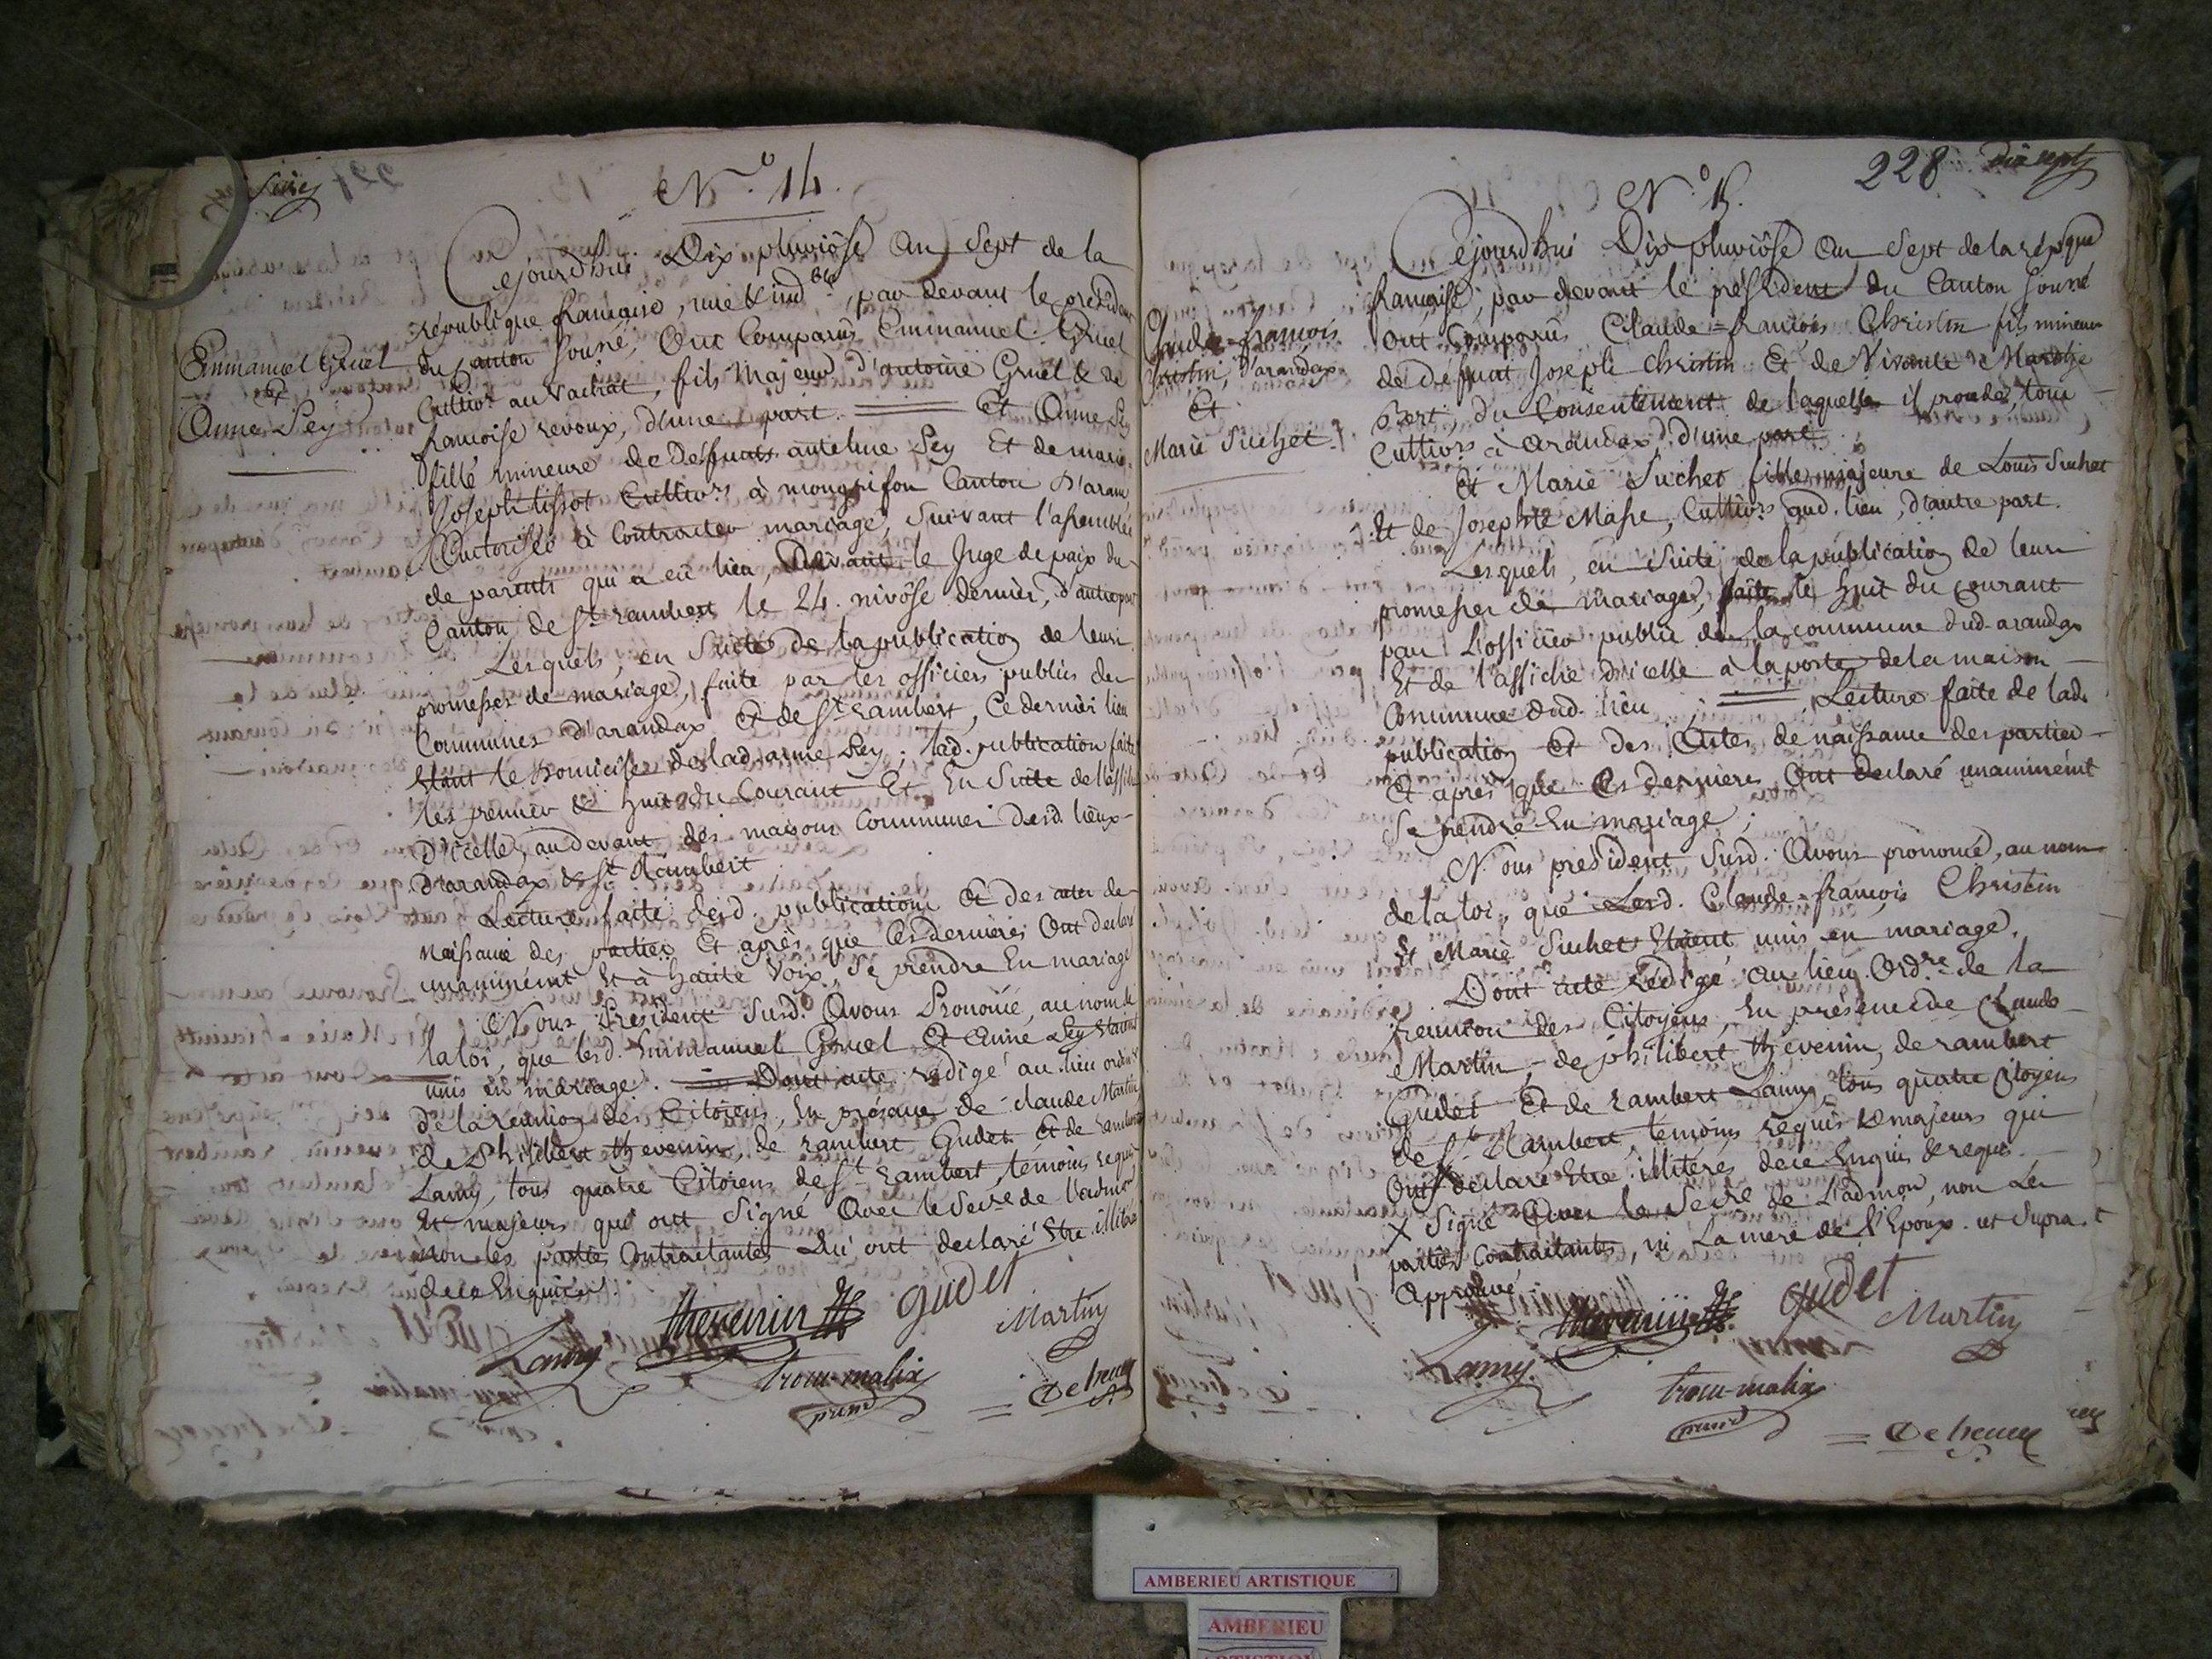 Seize
N.° 14.
Cejourdhui Dix pluviôse an Sept de la
république française, une & ind.ble, par devant le président
du Canton soussé, Ont Comparus Emmanuel Gruel
Cultivr. au Vachat, fils Majeur d'antoine Gruel & de
francoise revoux, d'une part. Et Anne Pey
fille mineure de Deffunts antelme Pey Et de marie
Joseph tissot Cultivrs à mongrifon Canton D'aran
Autorisée à Contracter mariage, Suivant l'assemblée
de parents qui a eu lieu, Devant le Juge de paix du
Canton de St. rambert le 24. nivôse dernier, d'autre part
Lesquels, en Suite de la publication de leurs
promesses de mariage, faite par les officiers publics des
Communes d'arandax Et de St. rambert, Ce dernier lieu
Etant le Domicile de lad. anne Pey; lad. publication faite
les premier & huit du Courant Et En Suite de l'affiche
D'icelle, au devant des maisons Communes desd. lieux
D'arandax & St. Rambert
Lecture faite desd. publications Et des actes de
naissance des parties Et après que Ces dernieres Ont declaré
unaniment Et à haute Voix, Se prendre En mariage
Nous Président Susd. Avons Prononcé, au nom de
la loi, que lesd. Emmanuel Gruel Et Anne Pey Etaient
unis en mariage. Dont acte redigé au lieu ordin.re
de la réunion des Citoiens, En présence de claude Martin
de Philibert thevenin, de rambert Gudet Et de rambert
Lamy, tous quatre Citoiens de St. rambert, témoins requis
Et majeurs qui ont Signé Avec le Secre. de l'admon.
non les parties Contractantes Qui ont declaré Etre illiteres
de ce Enquises.
Emmanuel Gruel
Et
Anne Pey
thevenin gudet Martin
Lamy trocu-malix
presid.
228 Dix sept
N.° 15.
Cejourdhui Dix pluviôse an Sept de la répque
française, par devant le président du Canton soussé
Ont Comparus Claude=françois Christin fils mineur
de Deffunt Joseph Christin Et de Vivante
Bert, du Consentement de laquelle il procede, tous
Cultivrs à arandax, d'une part
Et Marie Suchet fille majeure de Louis Suchet
Et de Josephte Masse, Cultivrs aud. lieu, d'autre part.
Lesquels, en Suite de la publication de leurs
promesses de mariage, faite le huit du Courant
par L'officier public de la commune dud. arandax
Et de l'affiche d'icelle à la porte de la maison
Commune dud. lieu; Lecture faite de lad.
publication Et des Actes de naissance des parties
Et après que Ces dernieres Ont declaré unaniment
Se prendre En mariage;
Nous président Susd. Avons prononcé, au nom
de la loi, que Lesd. Claude=françois Christin
Et Marie Suchet Etaient unis en mariage.
Dont acte redigé au lieu Ordre. de la
reunion des Citoyens, En présence de Claude
Martin, de philibert thevenin, de rambert
Gudet Et de rambert Lamy, tous quatre Citoyens
de St. Rambert, témoins requis & majeurs qui
Ont declaré Etre illiteres de ce Enquis & requis.
X Signé Avec le Secre de L'admon, non Les
parties Contractantes, ni La mere de l'Epoux. ut Supra.
Approuvé
Claude=francois
Christin, D'arandax
Et
Marie Suchet
thevenin gudet Martin
Lamy trocu-malix
presid.
AMBERIEU ARTISTIQUE
AMBERIEU
ARTISTIQUE